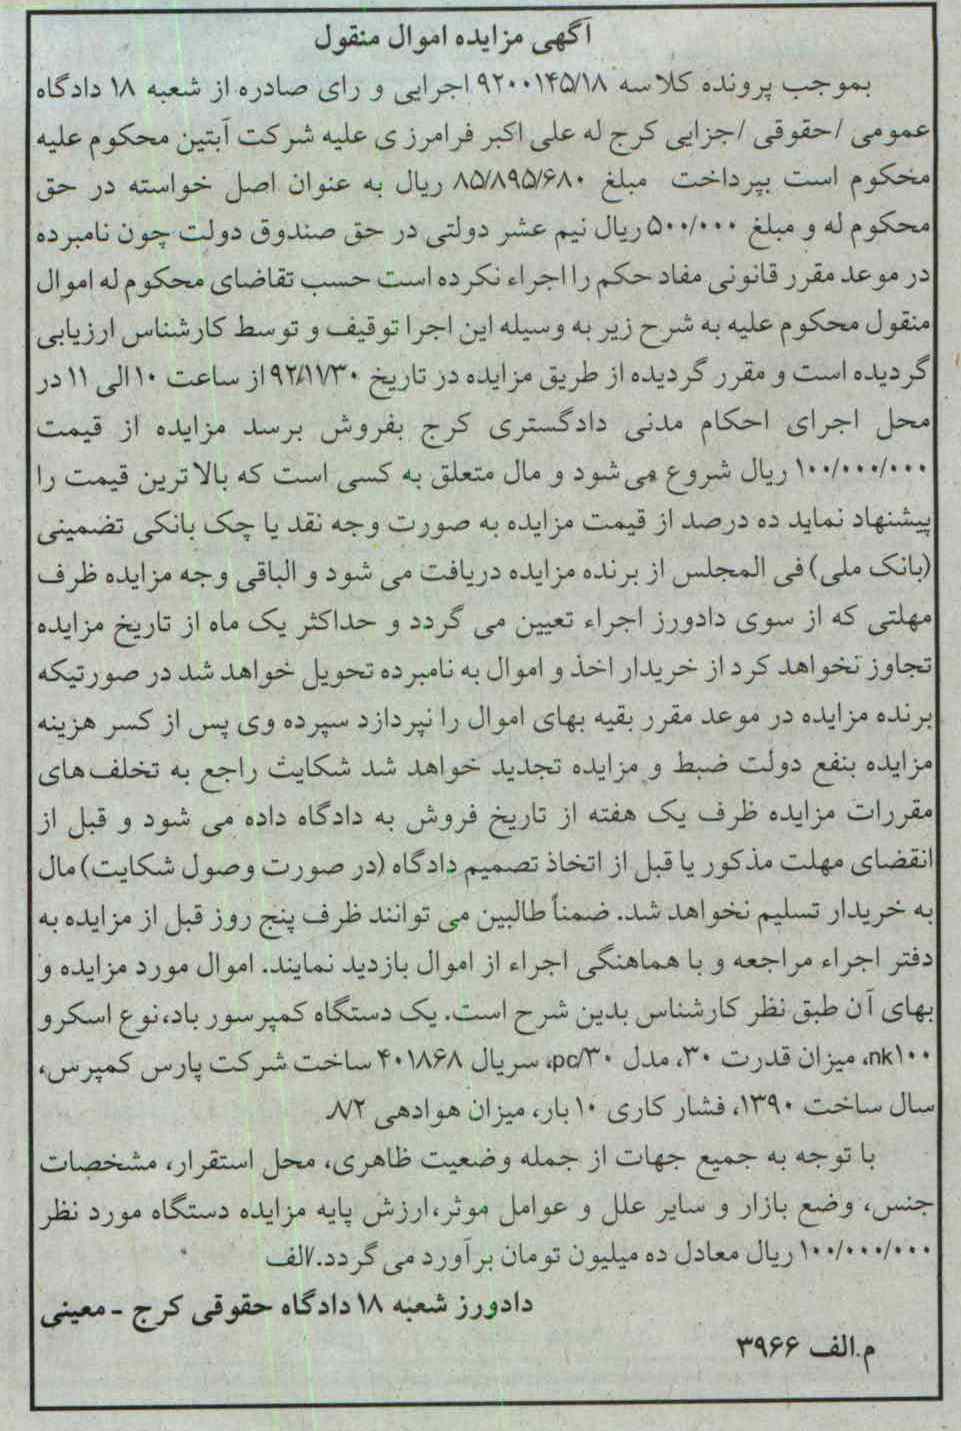 آگهی مزایده اموال منقول
بموجب پرونده کلاسه ۹۲۰۰۱۴۵/۱۸ اجرایی و رای صادره از شعبه ۱۸ دادگاه
عمومی /حقوقی /جزایی کرج له علی اکبر فرامرزی علیه شرکت آبتین محکوم علیه
محکوم است بپرداخت مبلغ ۸۵/۸۹۵/۶۸۰ ریال به عنوان اصل خواسته در حق
محکوم له و مبلغ ۵۰۰/۰۰۰ ریال نیم عشر دولتی در حق صندوق دولت چون نامبرده
در موعد مقرر قانونی مفاد حکم را اجراء نکرده است حسب تقاضای محکوم له اموال
منقول محکوم علیه به شرح زیر به وسیله این اجرا توقیف و توسط کارشناس ارزیابی
گردیده است و مقرر گردیده از طریق مزایده در تاریخ ۹۲/۱۱/۳۰ از ساعت ۱۰ الی ۱۱ در
محل اجرای احکام مدنی دادگستری کرج بفروش برسد مزایده از قیمت
۱۰۰/۰۰۰/۰۰۰ ریال شروع می شود و مال متعلق به کسی است که بالاترین قیمت را
پیشنهاد نماید ده درصد از قیمت مزایده به صورت وجه نقد یا چک بانکی تضمینی
(بانک ملی) فی المجلس از برنده مزایده دریافت می شود و الباقی وجه مزایده ظرف
مهلتی که از سوی دادورز اجراء تعیین می گردد و حداکثر یک ماه از تاریخ مزایده
تجاوز نخواهد کرد از خریدار اخذ و اموال به نامبرده تحویل خواهد شد در صورتیکه
برنده مزایده در موعد مقرر بقیه بهای اموال را نپردازد سپرده وی پس از کسر هزینه
مزایده بنفع دولت ضبط و مزایده تجدید خواهد شد شکایت راجع به تخلف‌های
مقررات مزایده ظرف یک هفته از تاریخ فروش به دادگاه داده می شود و قبل از
انقضای مهلت مذکور یا قبل از اتخاذ تصمیم دادگاه (در صورت وصول شکایت) مال
به خریدار تسلیم نخواهد شد. ضمناً طالبین می توانند ظرف پنج روز قبل از مزایده به
دفتر اجراء مراجعه و با هماهنگی اجراء از اموال بازدید نمایند. اموال مورد مزایده و
بهای آن طبق نظر کارشناس بدین شرح است. یک دستگاه کمپرسور باد، نوع اسکرو
nk۱۰۰، میزان قدرت ۳۰، مدل pc/۳۰، سریال ۴۰۱۸۶۸ ساخت شرکت پارس کمپرس،
سال ساخت ۱۳۹۰، فشار کاری ۱۰ بار، میزان هوادهی ۸/۲.
با توجه به جمیع جهات از جمله وضعیت ظاهری، محل استقرار، مشخصات
جنس، وضع بازار و سایر علل و عوامل موثر، ارزش پایه مزایده دستگاه مورد نظر
۱۰۰/۰۰۰/۰۰۰ ریال معادل ده میلیون تومان برآورد می گردد./الف
دادورز شعبه ۱۸ دادگاه حقوقی کرج - معینی
م.الف ۳۹۶۶